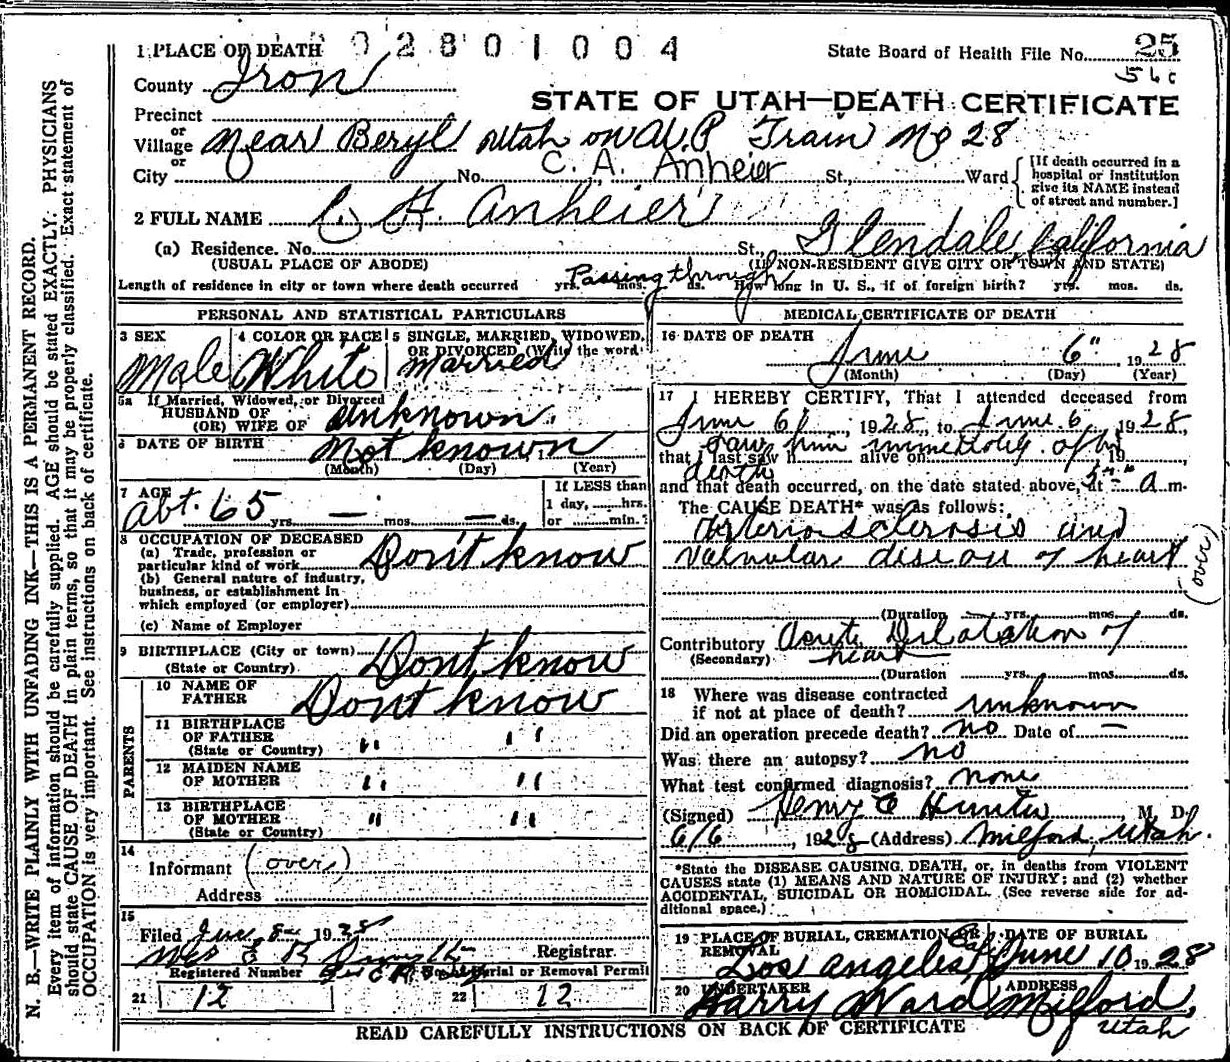 1 PLACE OF DEATH 02801004 State Board of Health File No. 25
County Iron 56c
STATE OF UTAH—DEATH CERTIFICATE
Precinct
or
Village Near Beryl Utah on U.P. Train No 28
or
City No. C. A. Anheier St., Ward
[If death occurred in a hospital or institution give its NAME instead of street and number.]
2 FULL NAME C. H. Anheier
(a) Residence. No. St., Glendale, California
(USUAL PLACE OF ABODE) (IF NON-RESIDENT GIVE CITY OR TOWN AND STATE)
Passing through
Length of residence in city or town where death occurred yrs. mos. ds. How long in U. S., if of foreign birth? yrs. mos. ds.
PERSONAL AND STATISTICAL PARTICULARS
3 SEX 4 COLOR OR RACE 5 SINGLE, MARRIED, WIDOWED, OR DIVORCED (Write the word)
Male White Married
5a If Married, Widowed, or Divorced
HUSBAND OF
(OR) WIFE OF unknown
6 DATE OF BIRTH Not known
(Month) (Day) (Year)
7 AGE If LESS than
Abt. 65 yrs. — mos. — ds. 1 day, hrs.
or min.?
8 OCCUPATION OF DECEASED
(a) Trade, profession or
particular kind of work Don't know
(b) General nature of industry,
business, or establishment in
which employed (or employer)
(c) Name of Employer
9 BIRTHPLACE (City or town)
(State or Country) Dont know
PARENTS
10 NAME OF
FATHER Dont know
11 BIRTHPLACE
OF FATHER
(State or Country) " "
12 MAIDEN NAME
OF MOTHER " "
13 BIRTHPLACE
OF MOTHER
(State or Country) " "
14
Informant (over)
Address
15
Filed June 8 1928
Registrar.
Registered Number Burial or Removal Permit
21 12 22 12
MEDICAL CERTIFICATE OF DEATH
16 DATE OF DEATH
June 6" 1928
(Month) (Day) (Year)
17 I HEREBY CERTIFY, That I attended deceased from
June 6, 1928, to June 6, 1928,
saw him immediately after
that I last saw h alive on 19
death
and that death occurred, on the date stated above, at 3 a m.
The CAUSE DEATH* was as follows:
Arterio sclerosis and
Valvular disease of heart (over)
(Duration yrs. mos. ds.
Contributory Acute Dilatation of
(Secondary) heart
(Duration yrs. mos. ds.
18 Where was disease contracted
if not at place of death? unknown
Did an operation precede death? no Date of —
Was there an autopsy? no
What test confirmed diagnosis? none
(Signed) Henry C Hunter M. D.
6/6, 1928 (Address) Milford, Utah.
*State the DISEASE CAUSING DEATH, or, in deaths from VIOLENT
CAUSES state (1) MEANS AND NATURE OF INJURY; and (2) whether
ACCIDENTAL, SUICIDAL OR HOMICIDAL. (See reverse side for ad-
ditional space.)
19 PLACE OF BURIAL, CREMATION OR REMOVAL DATE OF BURIAL
Los Angeles Cal June 10 1928
20 UNDERTAKER ADDRESS
Harry Ward Milford, Utah
READ CAREFULLY INSTRUCTIONS ON BACK OF CERTIFICATE
N. B.—WRITE PLAINLY WITH UNFADING INK—THIS IS A PERMANENT RECORD.
Every item of information should be carefully supplied. AGE should be stated EXACTLY. PHYSICIANS
should state CAUSE OF DEATH in plain terms, so that it may be properly classified. Exact statement of
OCCUPATION is very important. See instructions on back of certificate.